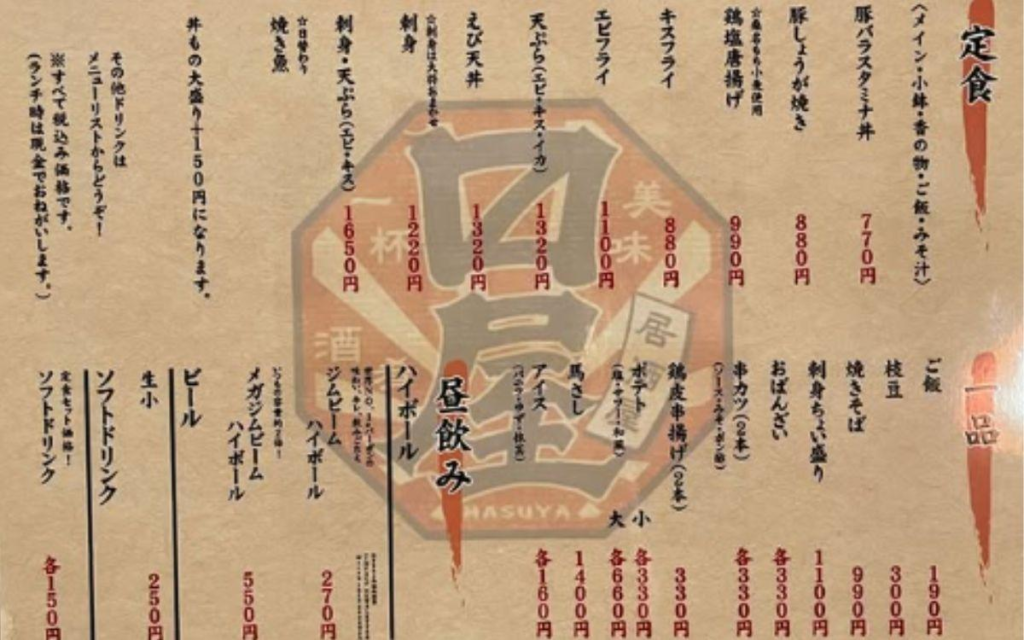 定食
(メイン・小鉢・香の物・ご飯・みそ汁)
豚バラスタミナ丼 770円
豚しょうが焼き 880円
鶏塩唐揚げ 990円
キスフライ 880円
エビフライ 1100円
天ぷら(エビ・キス・イカ) 1320円
えび天丼 1320円
刺身 1220円
☆刺身は大将おまかせ
刺身・天ぷら(エビ・キス) 1650円
☆日替わり
焼き魚
丼もの大盛り+150円になります。
その他ドリンクは
メニューリストからどうぞ!
※すべて税込み価格です。
(ランチ時は現金でおねがいします。)
一品
ご飯 190円
枝豆 300円
焼きそば 990円
刺身ちょい盛り 1100円
おばんざい 各330円
串カツ(2本) 各330円
(ソース・みそ・ポン酢)
鶏皮串揚げ(2本) 330円
ポテト 小 各330円
大 各660円
馬さし 1400円
アイス 各160円
昼飲み
ハイボール
ジムビーム
ハイボール 270円
メガジムビーム
ハイボール 550円
ビール
生小 250円
ソフトドリンク
定食セット価格!
ソフトドリンク 各150円
美味
一杯
酒
居
屋
MASUYA